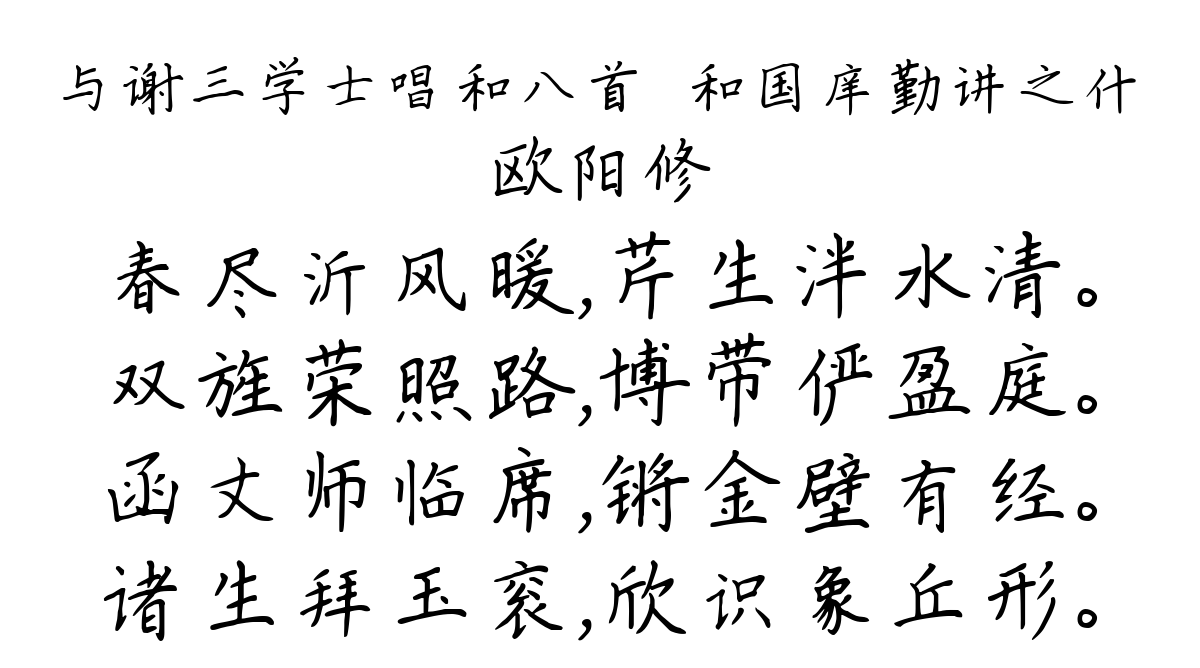 与谢三学士唱和八首 和国庠勤讲之什
欧阳修
春尽沂风暖,芹生泮水清。
双旌荣照路,博带俨盈庭。
函丈师临席,锵金壁有经。
诸生拜玉衮,欣识象丘形。